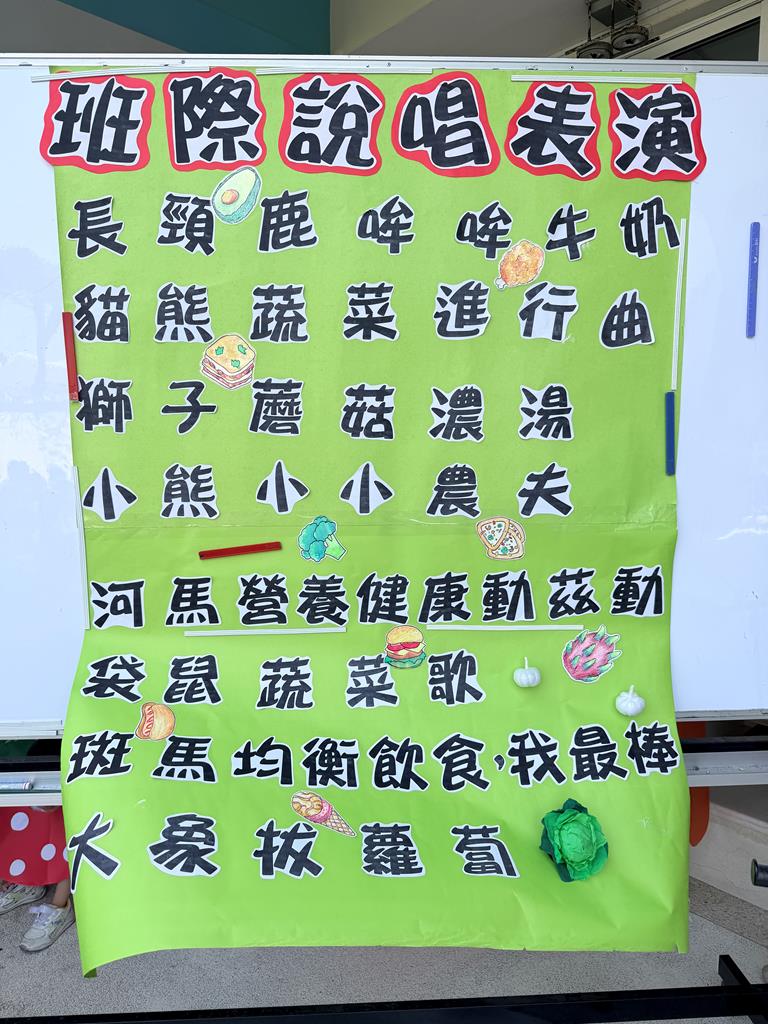 班際說唱表演
長頸鹿 哞哞牛奶
貓熊 蔬菜進行曲
獅子 蘑菇濃湯
小熊 小小農夫
河馬 營養健康動茲動
袋鼠 蔬菜歌
斑馬 均衡飲食,我最棒
大象 拔蘿蔔